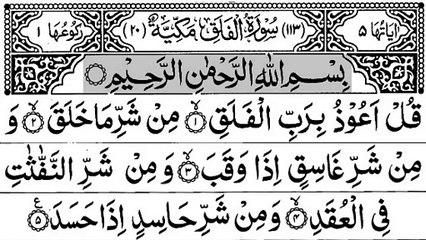 اٰیَاتُهَا ۵ (۱۱۳) سُوْرَةُ الْفَلَقِ مَكِّیَّةٌ (۲۰) رُكُوْعُهَا ۱
بِسْمِ اللّٰهِ الرَّحْمٰنِ الرَّحِیْمِ
قُلْ اَعُوْذُ بِرَبِّ الْفَلَقِ ۙ﴿۱﴾ مِنْ شَرِّ مَا خَلَقَ ۙ﴿۲﴾ وَ
مِنْ شَرِّ غَاسِقٍ اِذَا وَقَبَ ۙ﴿۳﴾ وَ مِنْ شَرِّ النَّفّٰثٰتِ
فِی الْعُقَدِ ۙ﴿۴﴾ وَ مِنْ شَرِّ حَاسِدٍ اِذَا حَسَدَ ﴿۵﴾ ع